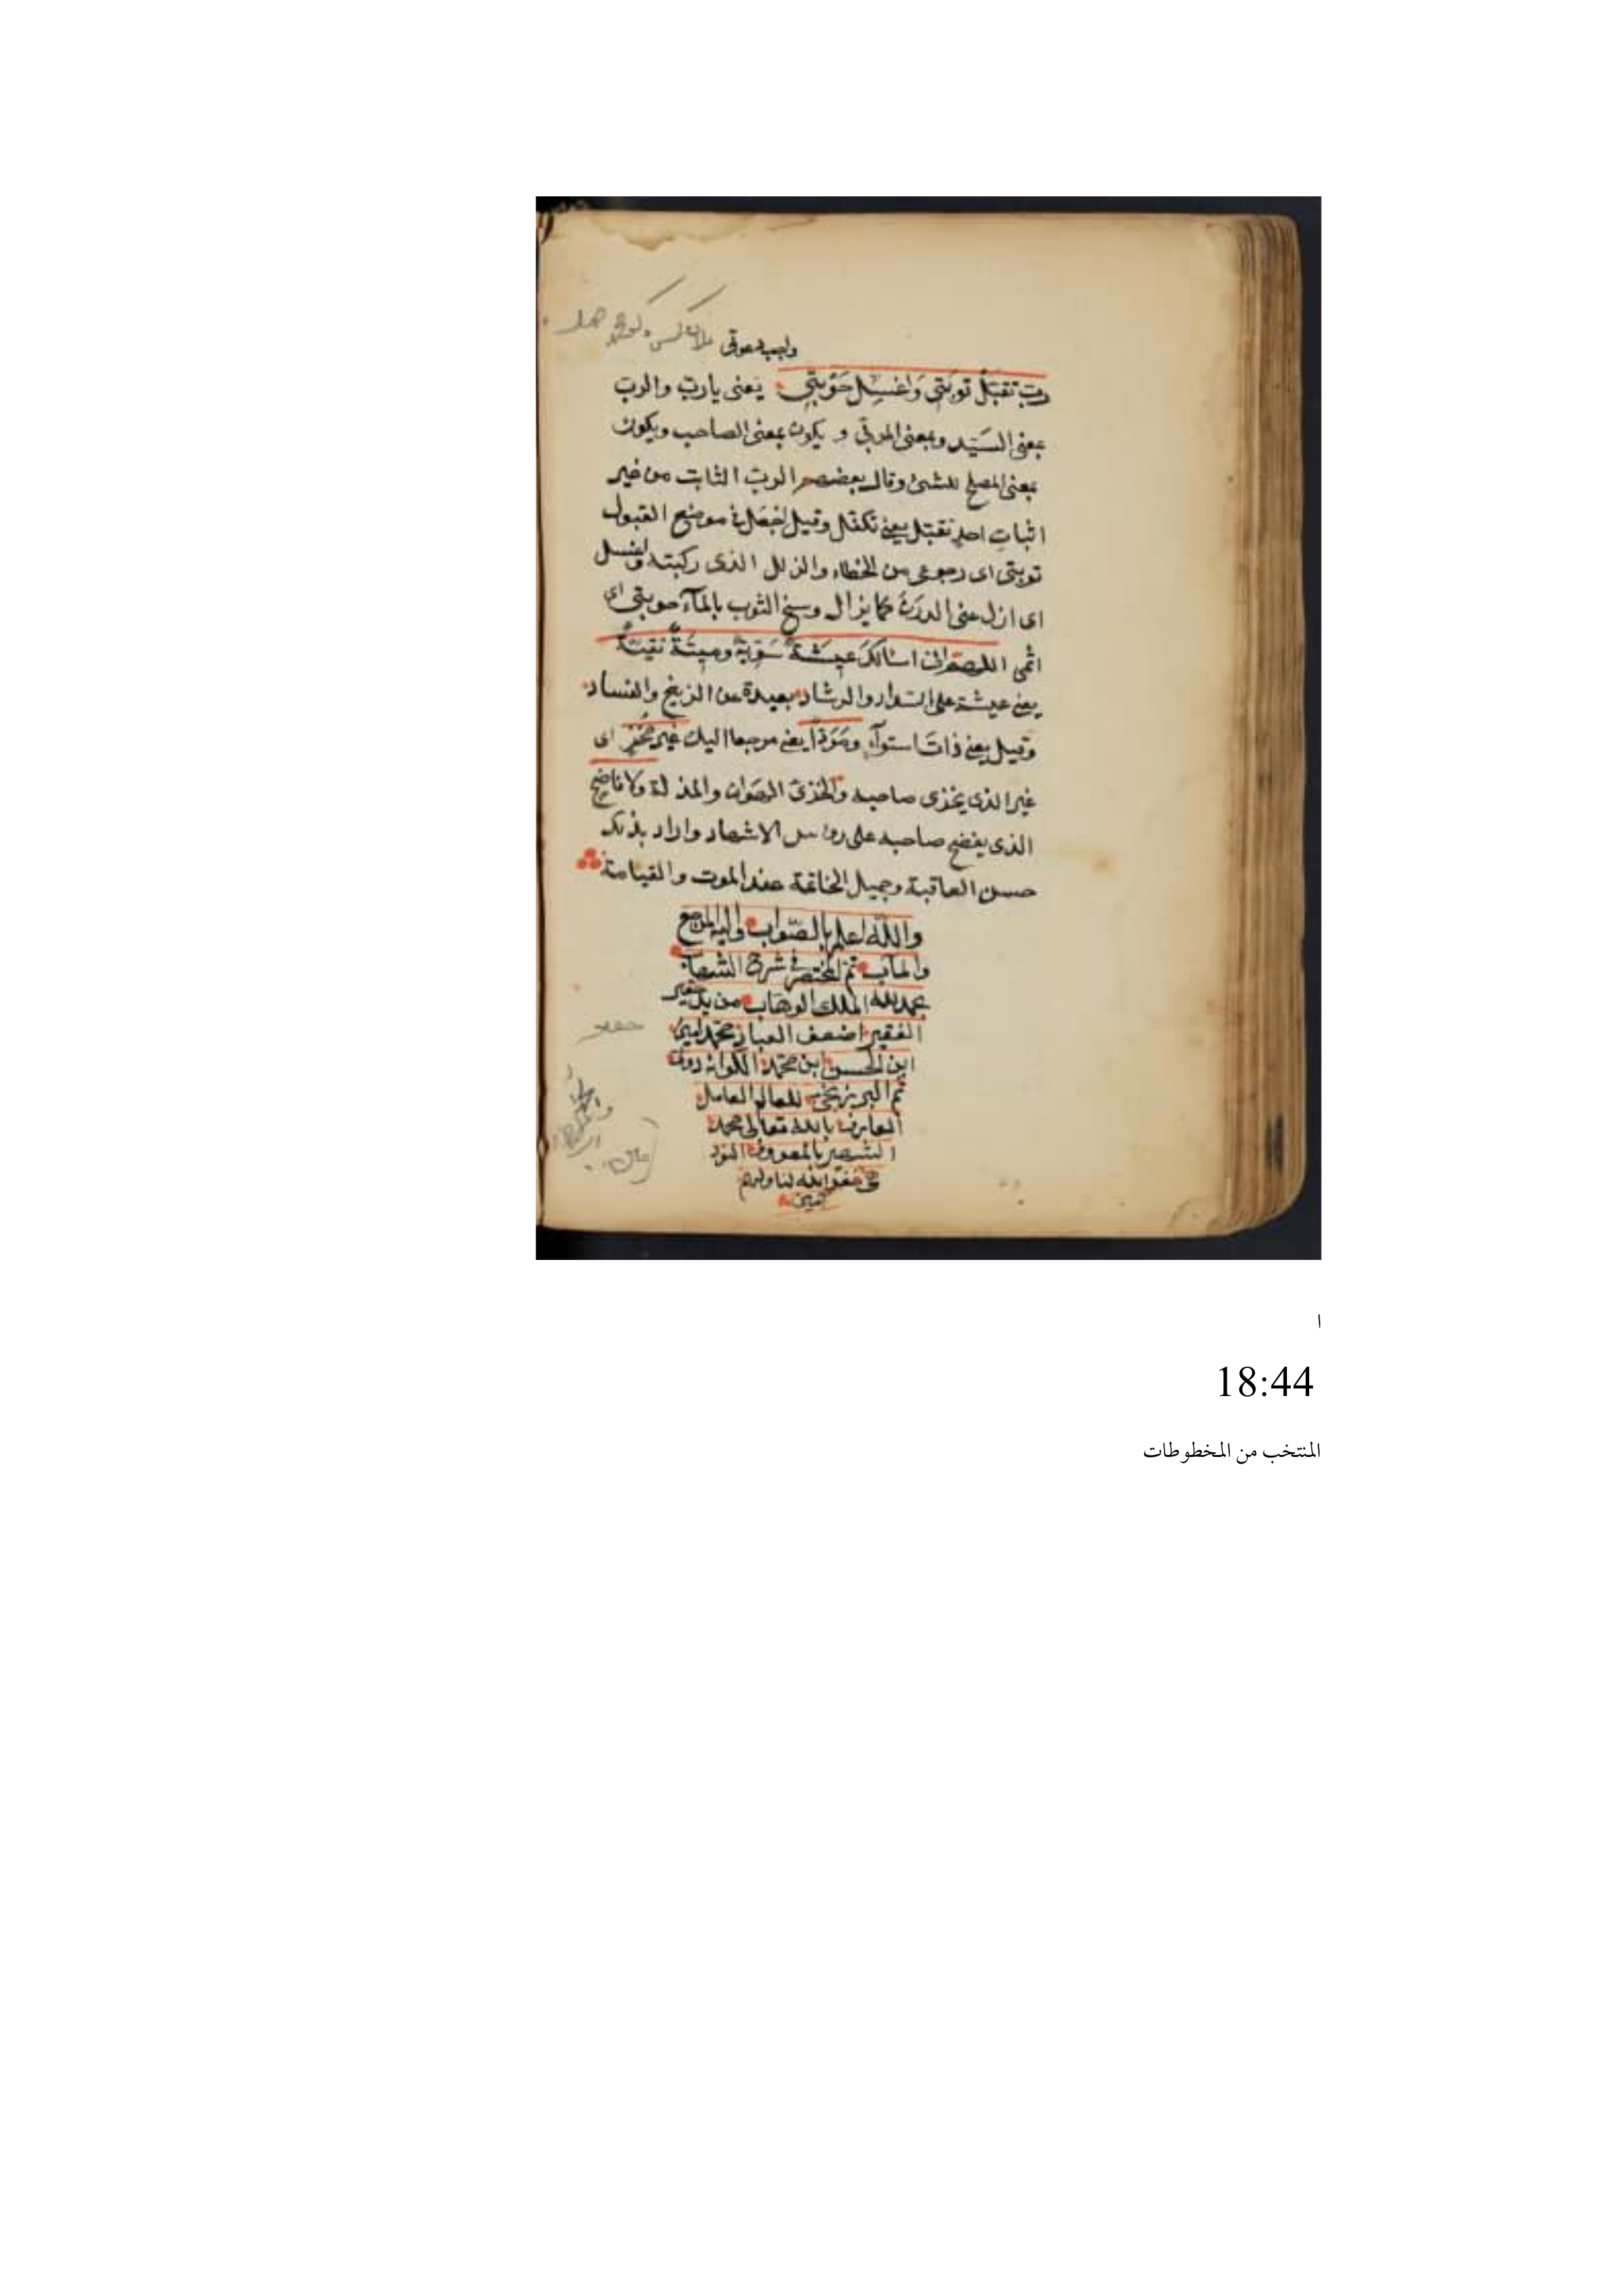 واجب دعوتى
رب تقبل توبتى واغسل حوبتى يعنى يارب والرب
بمعنى السيد وبمعنى المربى و يكون بمعنى الصاحب ويكون
بمعنى المصلح للشئ وقال بعضهم الرب الثابت من غير
اثبات احد تقبل يعنى تكفل وقيل اجعل فى موضع القبول
توبتى اى رجوعى من الخطاء والزلل الذى ركبته واغسل
اى ازل عنى الدرن كما يزال وسخ الثوب بالمآء حوبتى اى
اثمى اللهم انى اسالك عيشة سوية وميتة نقية
يعنى عيشة على السداد والرشاد بعيدة من الزيغ والفساد
وقيل يعنى ذات استوآء ومردا يعنى مرجعا اليك غير مخز اى
غير الذى يخزى صاحبه والخزى الهوان والمذلة ولا فاضح
الذى يفضح صاحبه على رؤس الاشهاد واراد بذلك
حسن العاقبة وجميل الخاتمة عند الموت والقيامة
والله اعلم بالصواب واليه المرجع
والمآب تم المختصر فى شرح الشهاب
بحمد لله الملك الوهاب من يد
الفقير اضعف العباد محمد امين
ابن الحسن ابن محمد
ثم البرزنجى للعالم العامل
العارف بالله تعالى محمد
الشهير بالمعروف النود
هى غفر الله لنا ولهم
امين
ا
18:44
المنتخب من المخطوطات